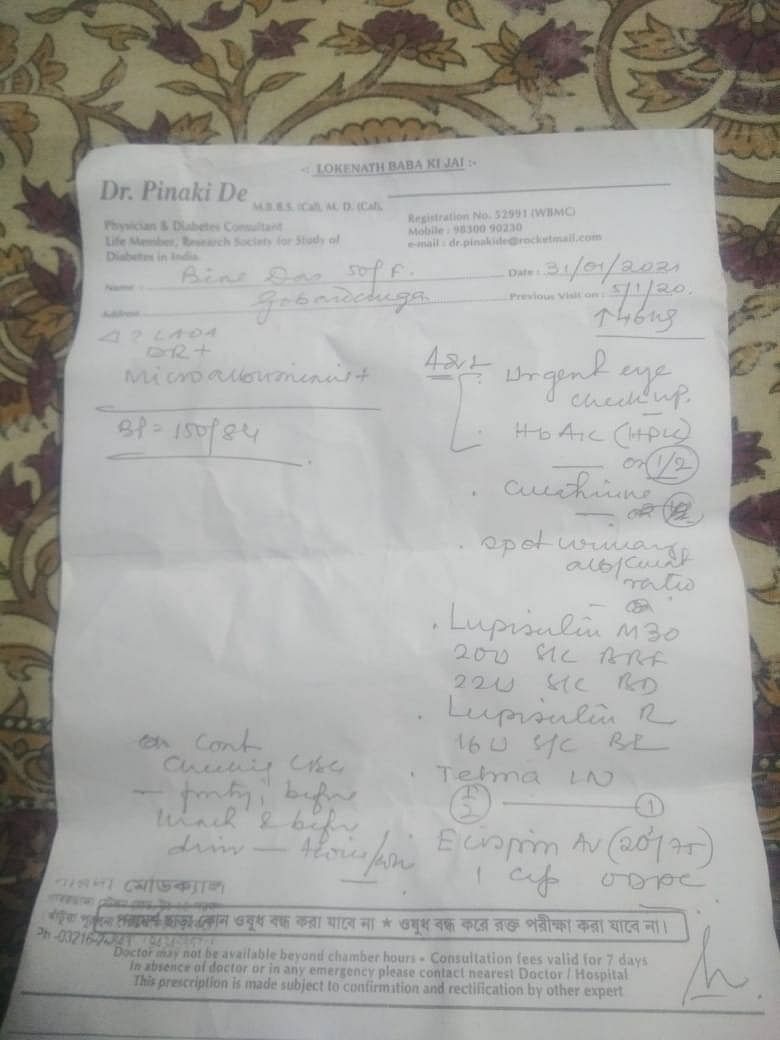 -: LOKENATH BABA KI JAI :-
Dr. Pinaki De M.B.B.S. (Cal), M. D. (Cal),
Physician & Diabetes Consultant
Life Member, Research Society for Study of
Diabetes in India
Registration No. 52991 (WBMC)
Mobile : 98300 90230
e-mail : dr.pinakide@rocketmail.com
Name : Das 50/F. Date : 31/01/2021
Address Previous Visit on : 5/1/20.
? LADA
DR+
BP = 150/84
Adv
Urgent eye
check up.
HbA1c (HPLC)
1/2
Creatinine
spot urinary
alb/creat
ratio
Lupisulin M30
20U S/C BBF
22U S/C BD
Lupisulin R
16U S/C BL
Telma LN
1/2 1
Ecosprin AV (20/75)
1 cap ODPC
Cont
Checking CBG
before
lunch & before
পরামর্শ ছাড়া কোন ওষুধ বন্ধ করা যাবে না ★ ওষুধ বন্ধ করে রক্ত পরীক্ষা করা যাবে না।
Doctor may not be available beyond chamber hours • Consultation fees valid for 7 days
In absence of doctor or in any emergency please contact nearest Doctor / Hospital
This prescription is made subject to confirmation and rectification by other expert